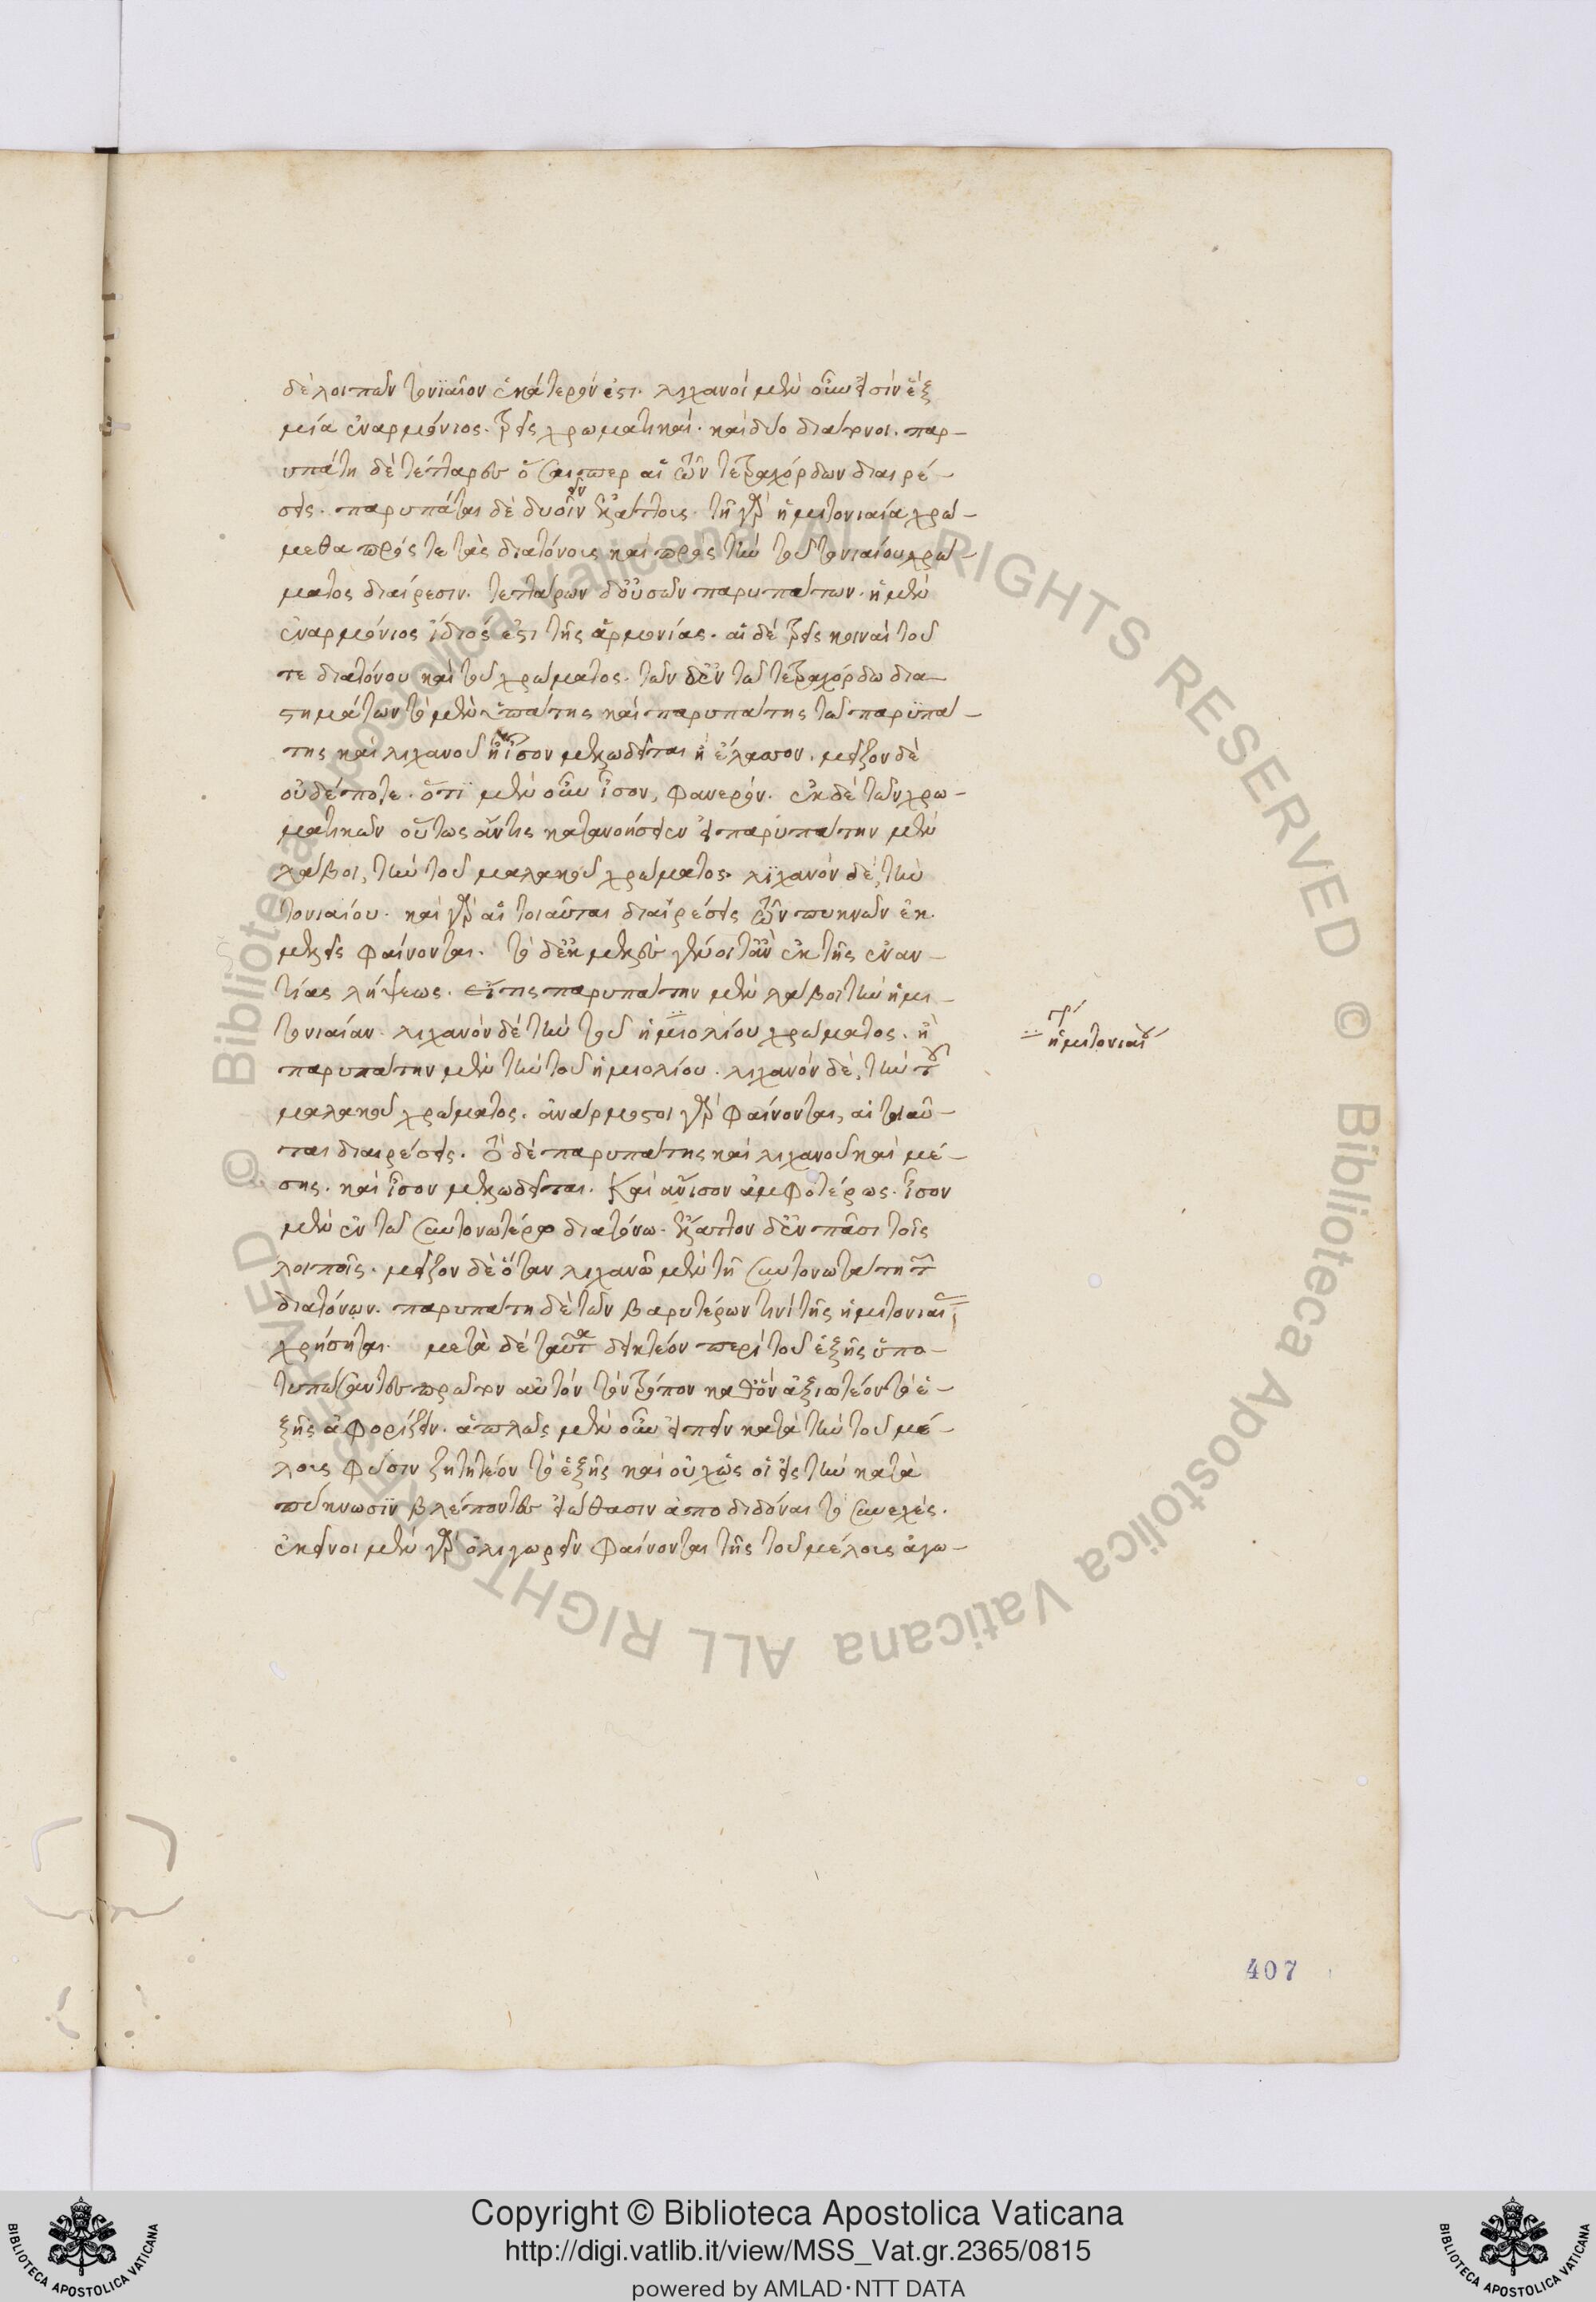 δὲ λοιπῶν τονϊαῖον ἑκάτερόν ἐστι. λιχανοὶ μὲν οὖν εἰσὶν ἓξ
μία ἐναρμόνιος. τρεῖς χρωματικαί. καὶ δύο διάτονοι. παρ-
υπάτη δὲ τέτταρες ὅσαι περ αἱ τῶν τετραχόρδων διαιρέ-
σεις. παρυπάται δὲ δυοῖν ἐλάττους. τῇ γὰρ ἡμιτονιαία χρώ-
μεθα πρός τε τὰς διατόνους καὶ πρὸς τὴν τοῦ τονιαίου χρώ-
ματος διαίρεσιν. τεττάρων δ' οὐσῶν παρυπάτων. ἡ μὲν
ἐναρμόνιος ἴδιός ἐστι τῆς ἁρμονίας. αἱ δὲ τρεῖς κοιναὶ τοῦ
τε διατόνου καὶ τοῦ χρώματος. τῶν δ' ἐν τῶ τετραχόρδω δια-
στημάτων τὸ μὲν ὑπάτης καὶ παρυπάτης τῶ παρϋπά-
της καὶ λιχανοῦ ἢ ἴσον μελωδεῖται ἢ ἔλαττον. μεῖζον δὲ
οὐδέποτε. ὅτϊ μὲν οὖν ἴσον, φανερόν. ἐκ δὲ τῶν χρω-
ματικῶν οὕτως ἄν τις κατανοήσειεν εἰ παρϋπάτην μὲν
λάβοι, τὴν τοῦ μαλακοῦ χρώματος. λϊχανὸν δὲ, τὴν
τονιαίου. καὶ γὰρ αἱ τοιαῦται διαιρέσεις τῶν πυκνῶν ἐκ.
μελεῖς φαίνονται. τὸ δ' ἐκμελὲς γένοιτ' ἂν ἐκ τῆς ἐναν-
τίας λήψεως. εἴ τις παρυπάτην μὲν λάβοι τὴν ἡμι-
τονιαίαν. λιχανὸν δὲ τὴν τοῦ ἡμιολίου χρώματος. ἢ
παρυπάτην μὲν τὴν τοῦ ἡμιολίου. λιχανὸν δὲ, τὴν τοῦ
μαλακοῦ χρώματος. ἀνάρμοστοι γὰρ φαίνονται, αἱ τοιαῦ-
ται διαιρέσεις. τὸ δὲ παρυπάτης καὶ λιχανοῦ καὶ μέ-
σης. καὶ ἴσον μελωδεῖται. καὶ ἄνισον ἀμφοτέρως. ἴσον
μὲν ἐν τῶ συντονωτέρω διατόνω. ἔλαττον δ' ἐν πᾶσι τοῖς
λοιποῖς. μεῖζον δὲ ὅταν λιχανῶ μὲν τῇ συντονωτάτη τῶν
διατόνων. παρυπάτη δὲ τῶν βαρυτέρων τινὶ τῆς ἡμιτονιαίας
χρήσηται. μετὰ δὲ ταῦτα δεικτέον περὶ τοῦ ἑξῆς ὑπο-
τυπώσαντες πρῶτον αὐτὸν τὸν τρόπον καθ' ὃν ἀξιωτέον τὸ ἑ-
ξῆς ἀφορίζειν. ἁπλῶς μὲν οὖν εἰπεῖν κατὰ τὴν τοῦ μέ-
λους φύσιν ζητητέον τὸ ἑξῆς καὶ οὐχ ὡς οἱ εἰς τὴν κατὰ
πύκνωσϊν βλέποντες εἰώθασιν ἀποδιδόναι τὸ συνεχές.
ἐκεῖνοι μὲν γὰρ ὀλιγωρεῖν φαίνονται τῆς τοῦ μέλους ἀγω-
ἡμιτονιαίου
407
© Biblioteca Apostolica Vaticana ALL RIGHTS RESERVED © Biblioteca Apostolica Vaticana ALL RIGHTS RESERVED
Copyright © Biblioteca Apostolica Vaticana
http://digi.vatlib.it/view/MSS_Vat.gr.2365/0815
powered by AMLAD·NTT DATA
BIBLIOTECA APOSTOLICA VATICANA
BIBLIOTECA APOSTOLICA VATICANA